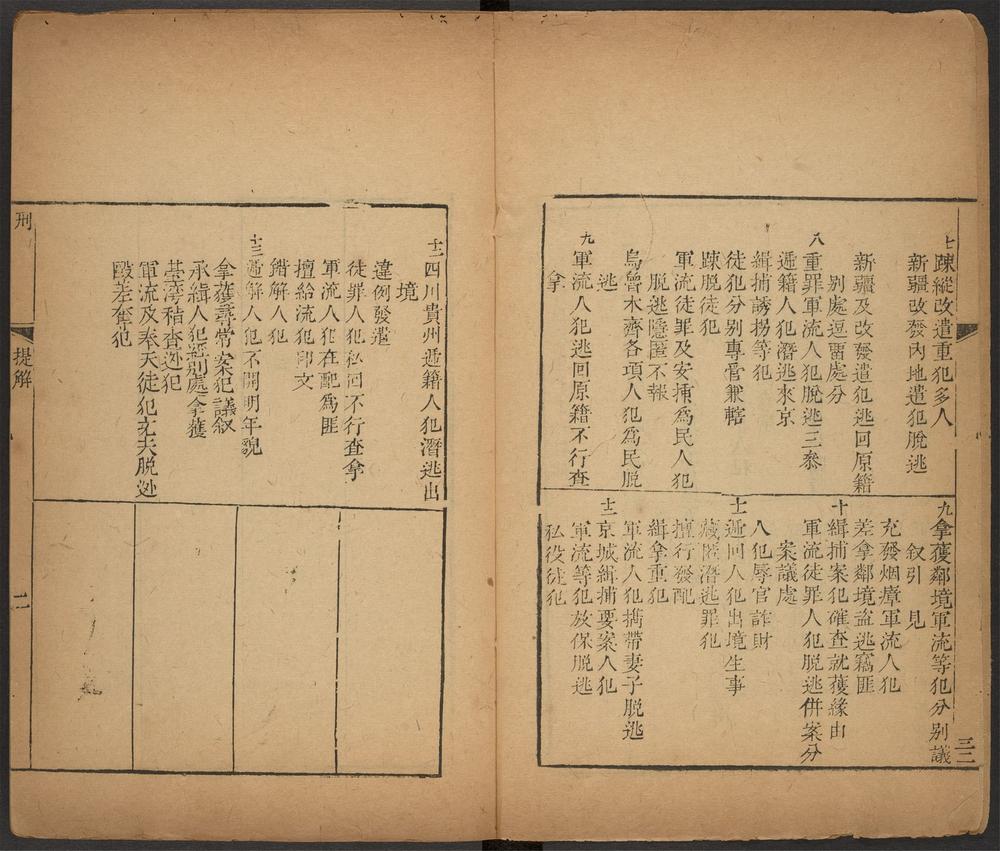 七疎縱改遣重犯多人
新疆改發內地遣犯脫逃
新疆及改發遣犯逃回原籍
別處逗畱處分
八重罪軍流人犯脫逃三參
遞籍人犯潛逃來京
緝捕誘拐等犯
徒犯分別專管兼轄
踈脫徒犯
軍流徒罪及安揷爲民人犯
脫逃隱匿不報
烏魯木齊各項人犯爲民脫
逃
九軍流人犯逃回原籍不行查
拿
九拿獲鄰境軍流等犯分別議
叙引 見
充發烟瘴軍流人犯
差拿鄰境盜逃竊匪
十緝捕案犯確查就獲緣由
軍流徒罪人犯脫逃併案分
案議處
人犯辱官詐財
十一遞回人犯出境生事
藏匿潛逃罪犯
擅行發配
緝拿重犯
軍流人犯攜帶妻子脫逃
十二京城緝捕要案人犯
軍流等犯放保脫逃
私役徒犯
三二
十二四川貴州遞籍人犯潛逃出
境
違例發遣
徒罪人犯私回不行查拿
軍流人犯在配爲匪
擅給流犯印文
錯解人犯
十三遞解人犯不開明年貌
拿獲尋常案犯議叙
承緝人犯經別處拿獲
臺灣稽查逃犯
軍流及奉天徒犯玄夫脫逃
毆差奪犯
刑
提解
二